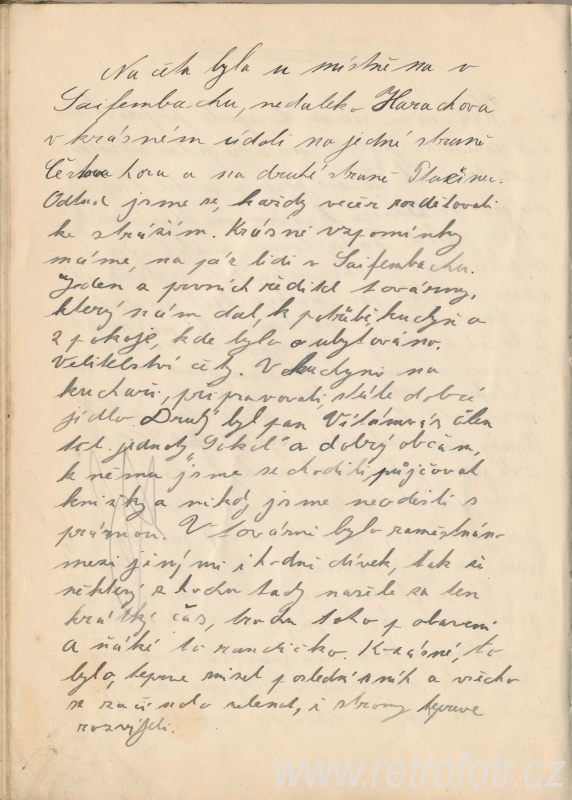 Na četa byla u místněna v
Saifembachu, nedaleko Harachova
v krásném údolí na jedné straně
Čertova hora a na druhé straně
Odtud jsme se, každy večer rozdělovali
ke strážím. Krásné vzpomínky
máme, na pár lidi v Saifembachu.
Jeden a prvních ředitel továrny,
který nám dal, k potřebě, kuchyň a
2 pokoje, kde bylo ubytováno.
Velitelství čety. V kuchyni na
kuchaři, připravovali, stále dobré
jídlo. Druhý byl pan člen
jednoty, "Sokol" a dobrý občan,
k němu jsme se chodili půjčovat
knížky a nikdy jsme neodešli s
práznou. V továrni bylo zaměstnáno
mezi jinými i hodně dívek, tak si
některý z hochu tady našele za ten
krátký čas, trochu toho
a ňáké to randíčko. Krásné, to
bylo, teprve misel poslední sníh a všecko
se začínalo zelenat, i stromy teprve
rozvíjeli.
www.retrofotr.cz